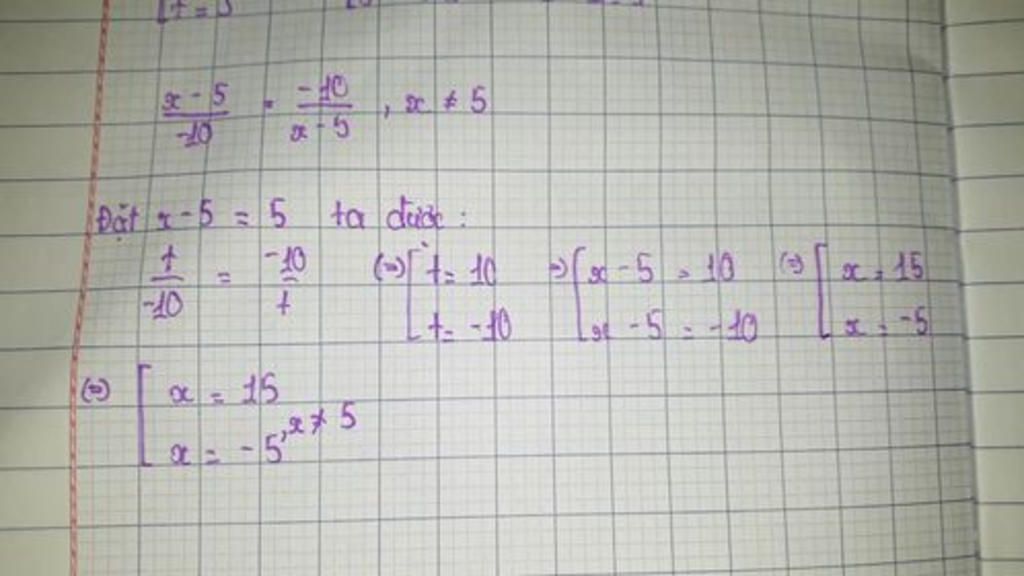 x - 5 / -10 = -10 / x - 5 , x ≠ 5
Đặt x - 5 = 5 ta được :
t / -10 = -10 / t (=) [ t = 10 =) [ x - 5 = 10 (=) [ x = 15
t = -10 x - 5 = -10 x = -5
(=) [ x = 15
x = -5 , x ≠ 5